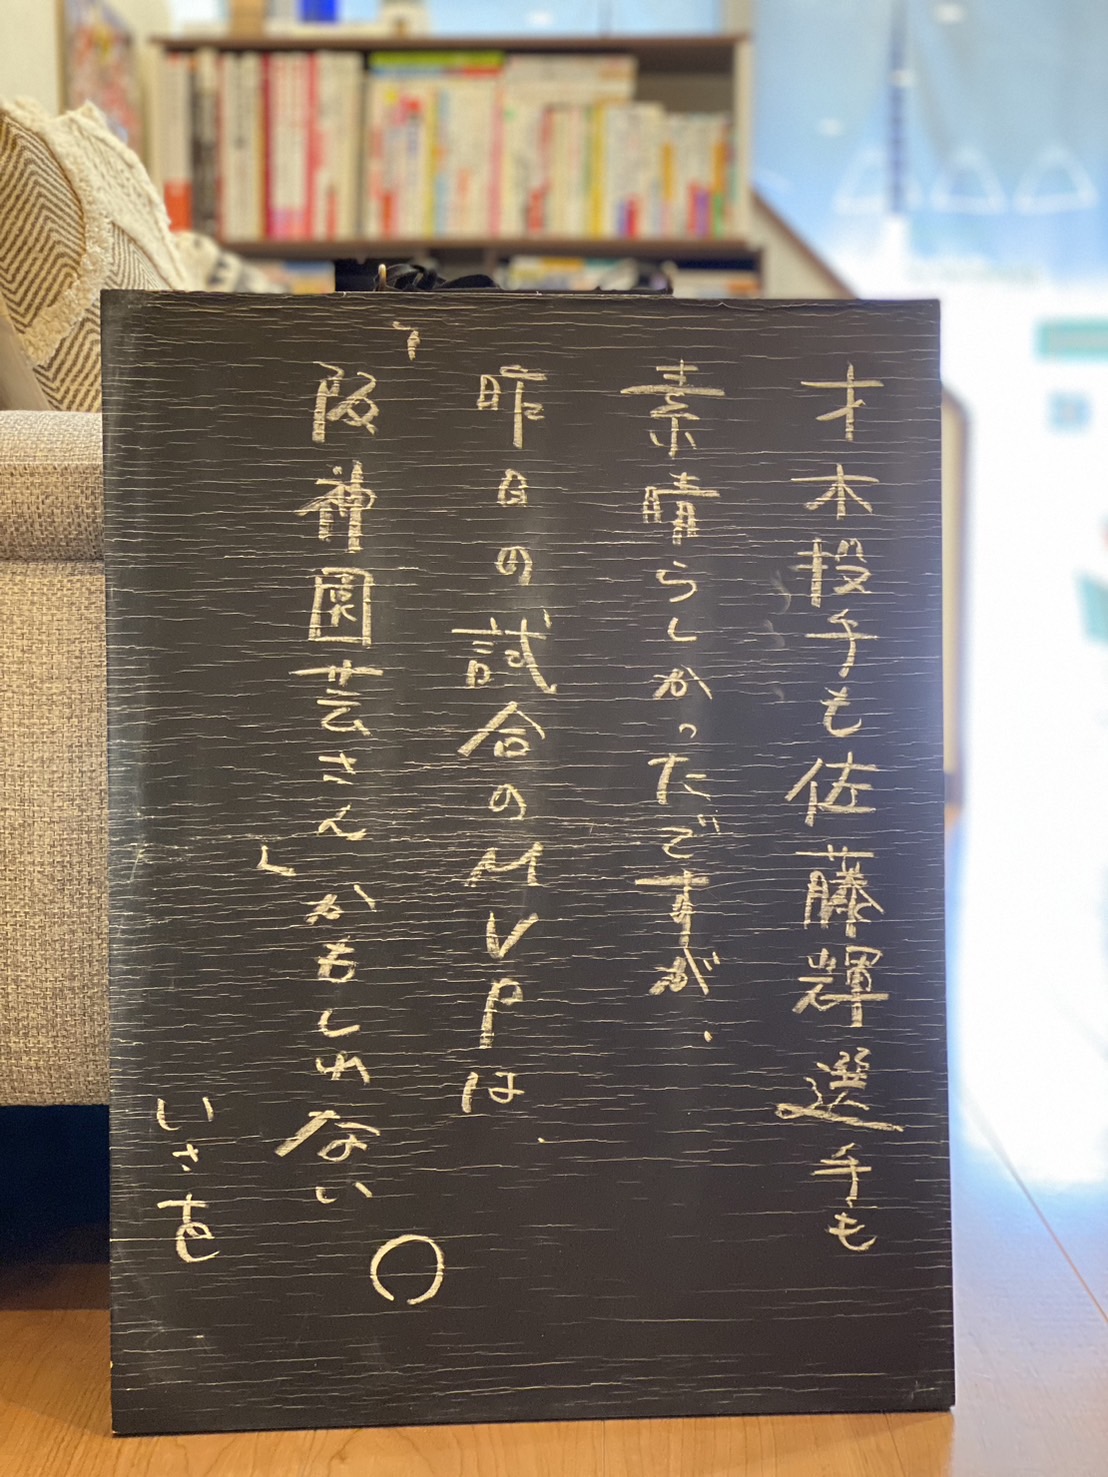 才木投手も佐藤輝選手も
素晴らしかったですが、
昨日の試合のMVPは、
「阪神園芸さん」かもしれない。